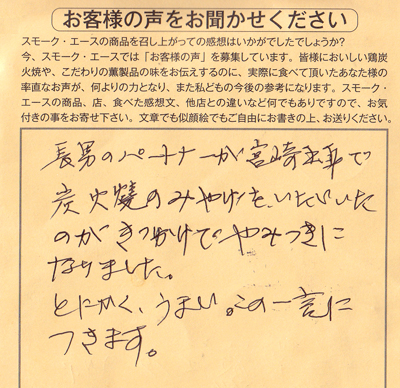 お客様の声をお聞かせください
スモーク・エースの商品を召し上がっての感想はいかがでしたでしょうか?
今、スモーク・エースでは「お客様の声」を募集しています。皆様においしい鶏炭
火焼や、こだわりの薫製品の味をお伝えするのに、実際に食べて頂いたあなた様の
率直なお声が、何よりの力となり、また私どもの今後の参考になります。スモーク・
エースの商品、店、食べた感想文、他店との違いなど何でもありですので、お気
付きの事をお寄せ下さい。文章でも似顔絵でもご自由にお書きの上、お送りください。
長男のパートナーが宮崎出身で
炭火焼のみやげをいただいた
のがきっかけでやみつきに
なりました。
とにかく、うまい。この一言に
つきます。